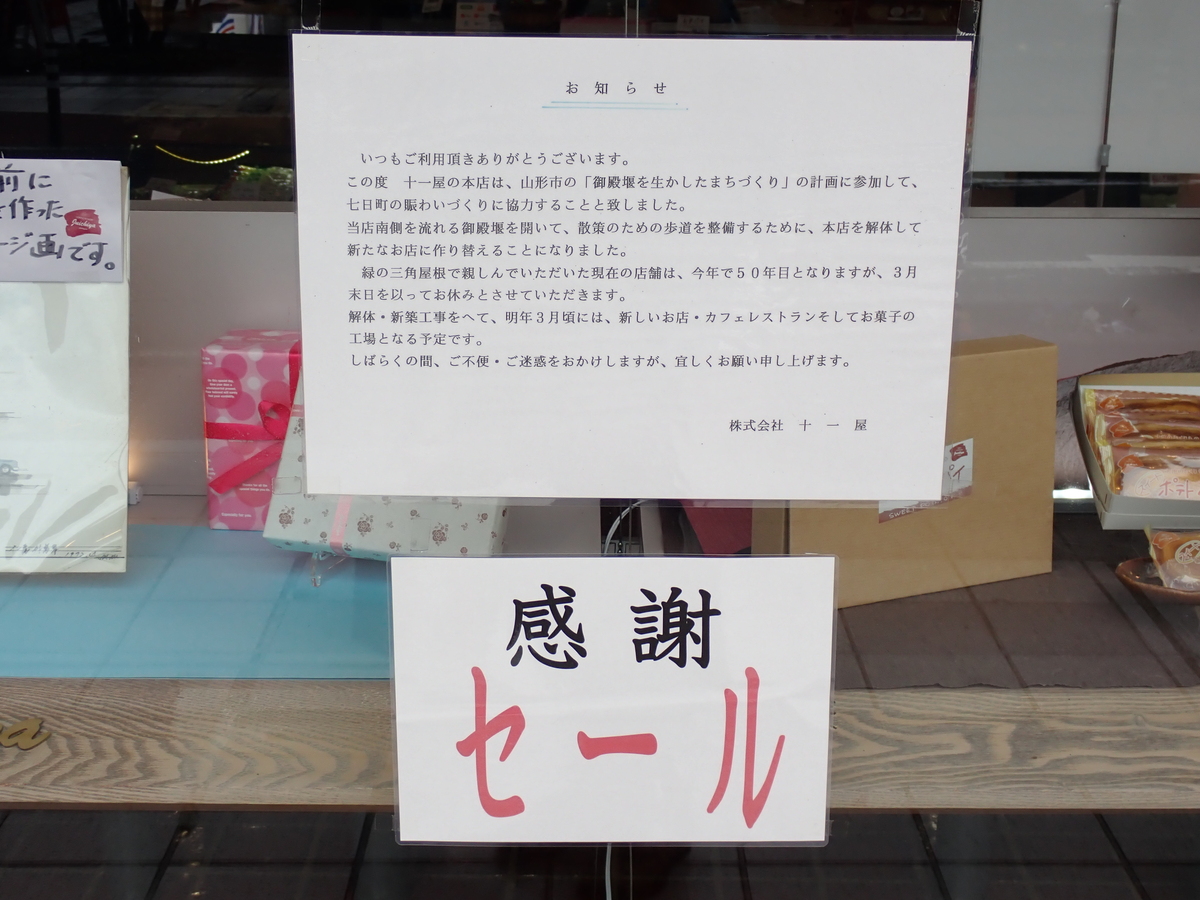 お知らせ
いつもご利用頂きありがとうございます。
この度　十一屋の本店は、山形市の「御殿堰を生かしたまちづくり」の計画に参加して、
七日町の賑わいづくりに協力することと致しました。
当店南側を流れる御殿堰を開いて、散策のための歩道を整備するために、本店を解体して
新たなお店に作り替えることになりました。
緑の三角屋根で親しんでいただいた現在の店舗は、今年で５０年目となりますが、３月
末日を以ってお休みとさせていただきます。
解体・新築工事をへて、明年３月頃には、新しいお店・カフェレストランそしてお菓子の
工場となる予定です。
しばらくの間、ご不便・ご迷惑をおかけしますが、宜しくお願い申し上げます。
株式会社　十　一　屋
感謝
セール
前に
作った
ージ画です。
Juichiya